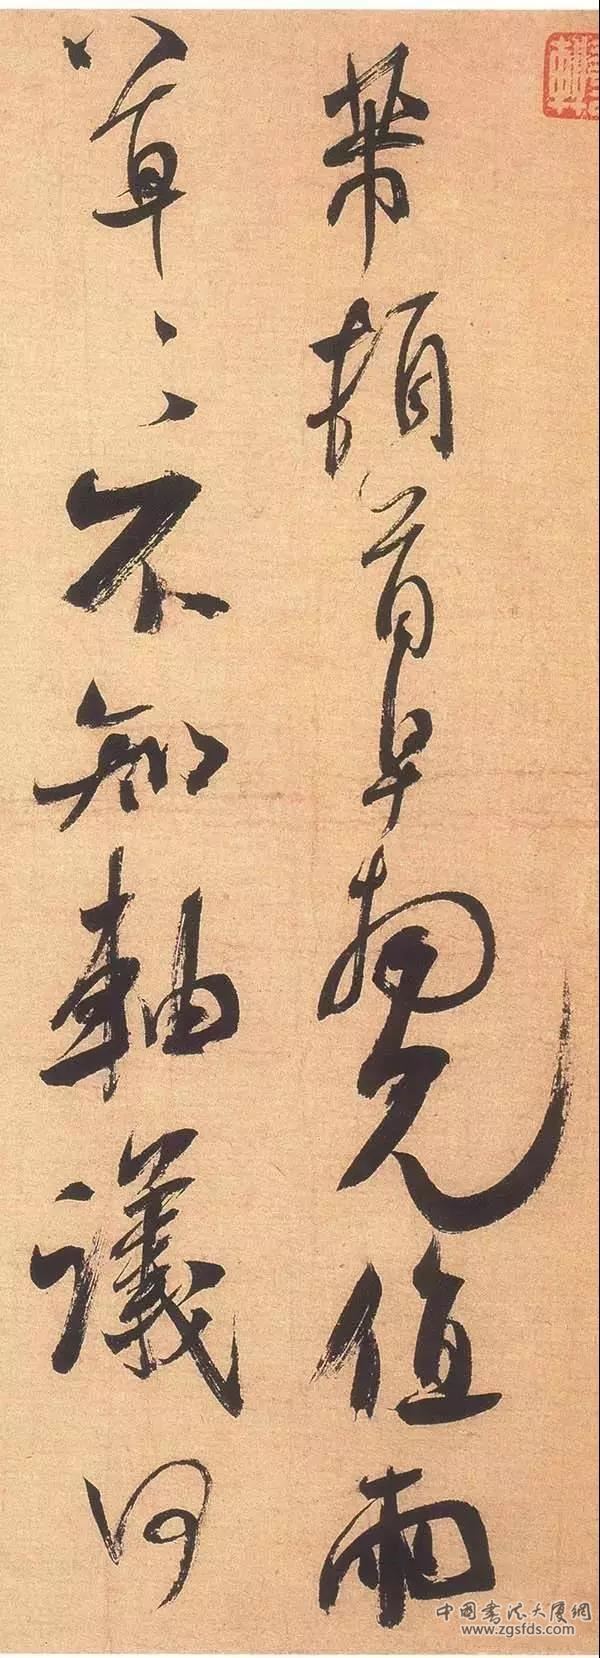 芾頓首早見值雨
草草不知軸議何
中国书法大厦网
www.zgsfds.com